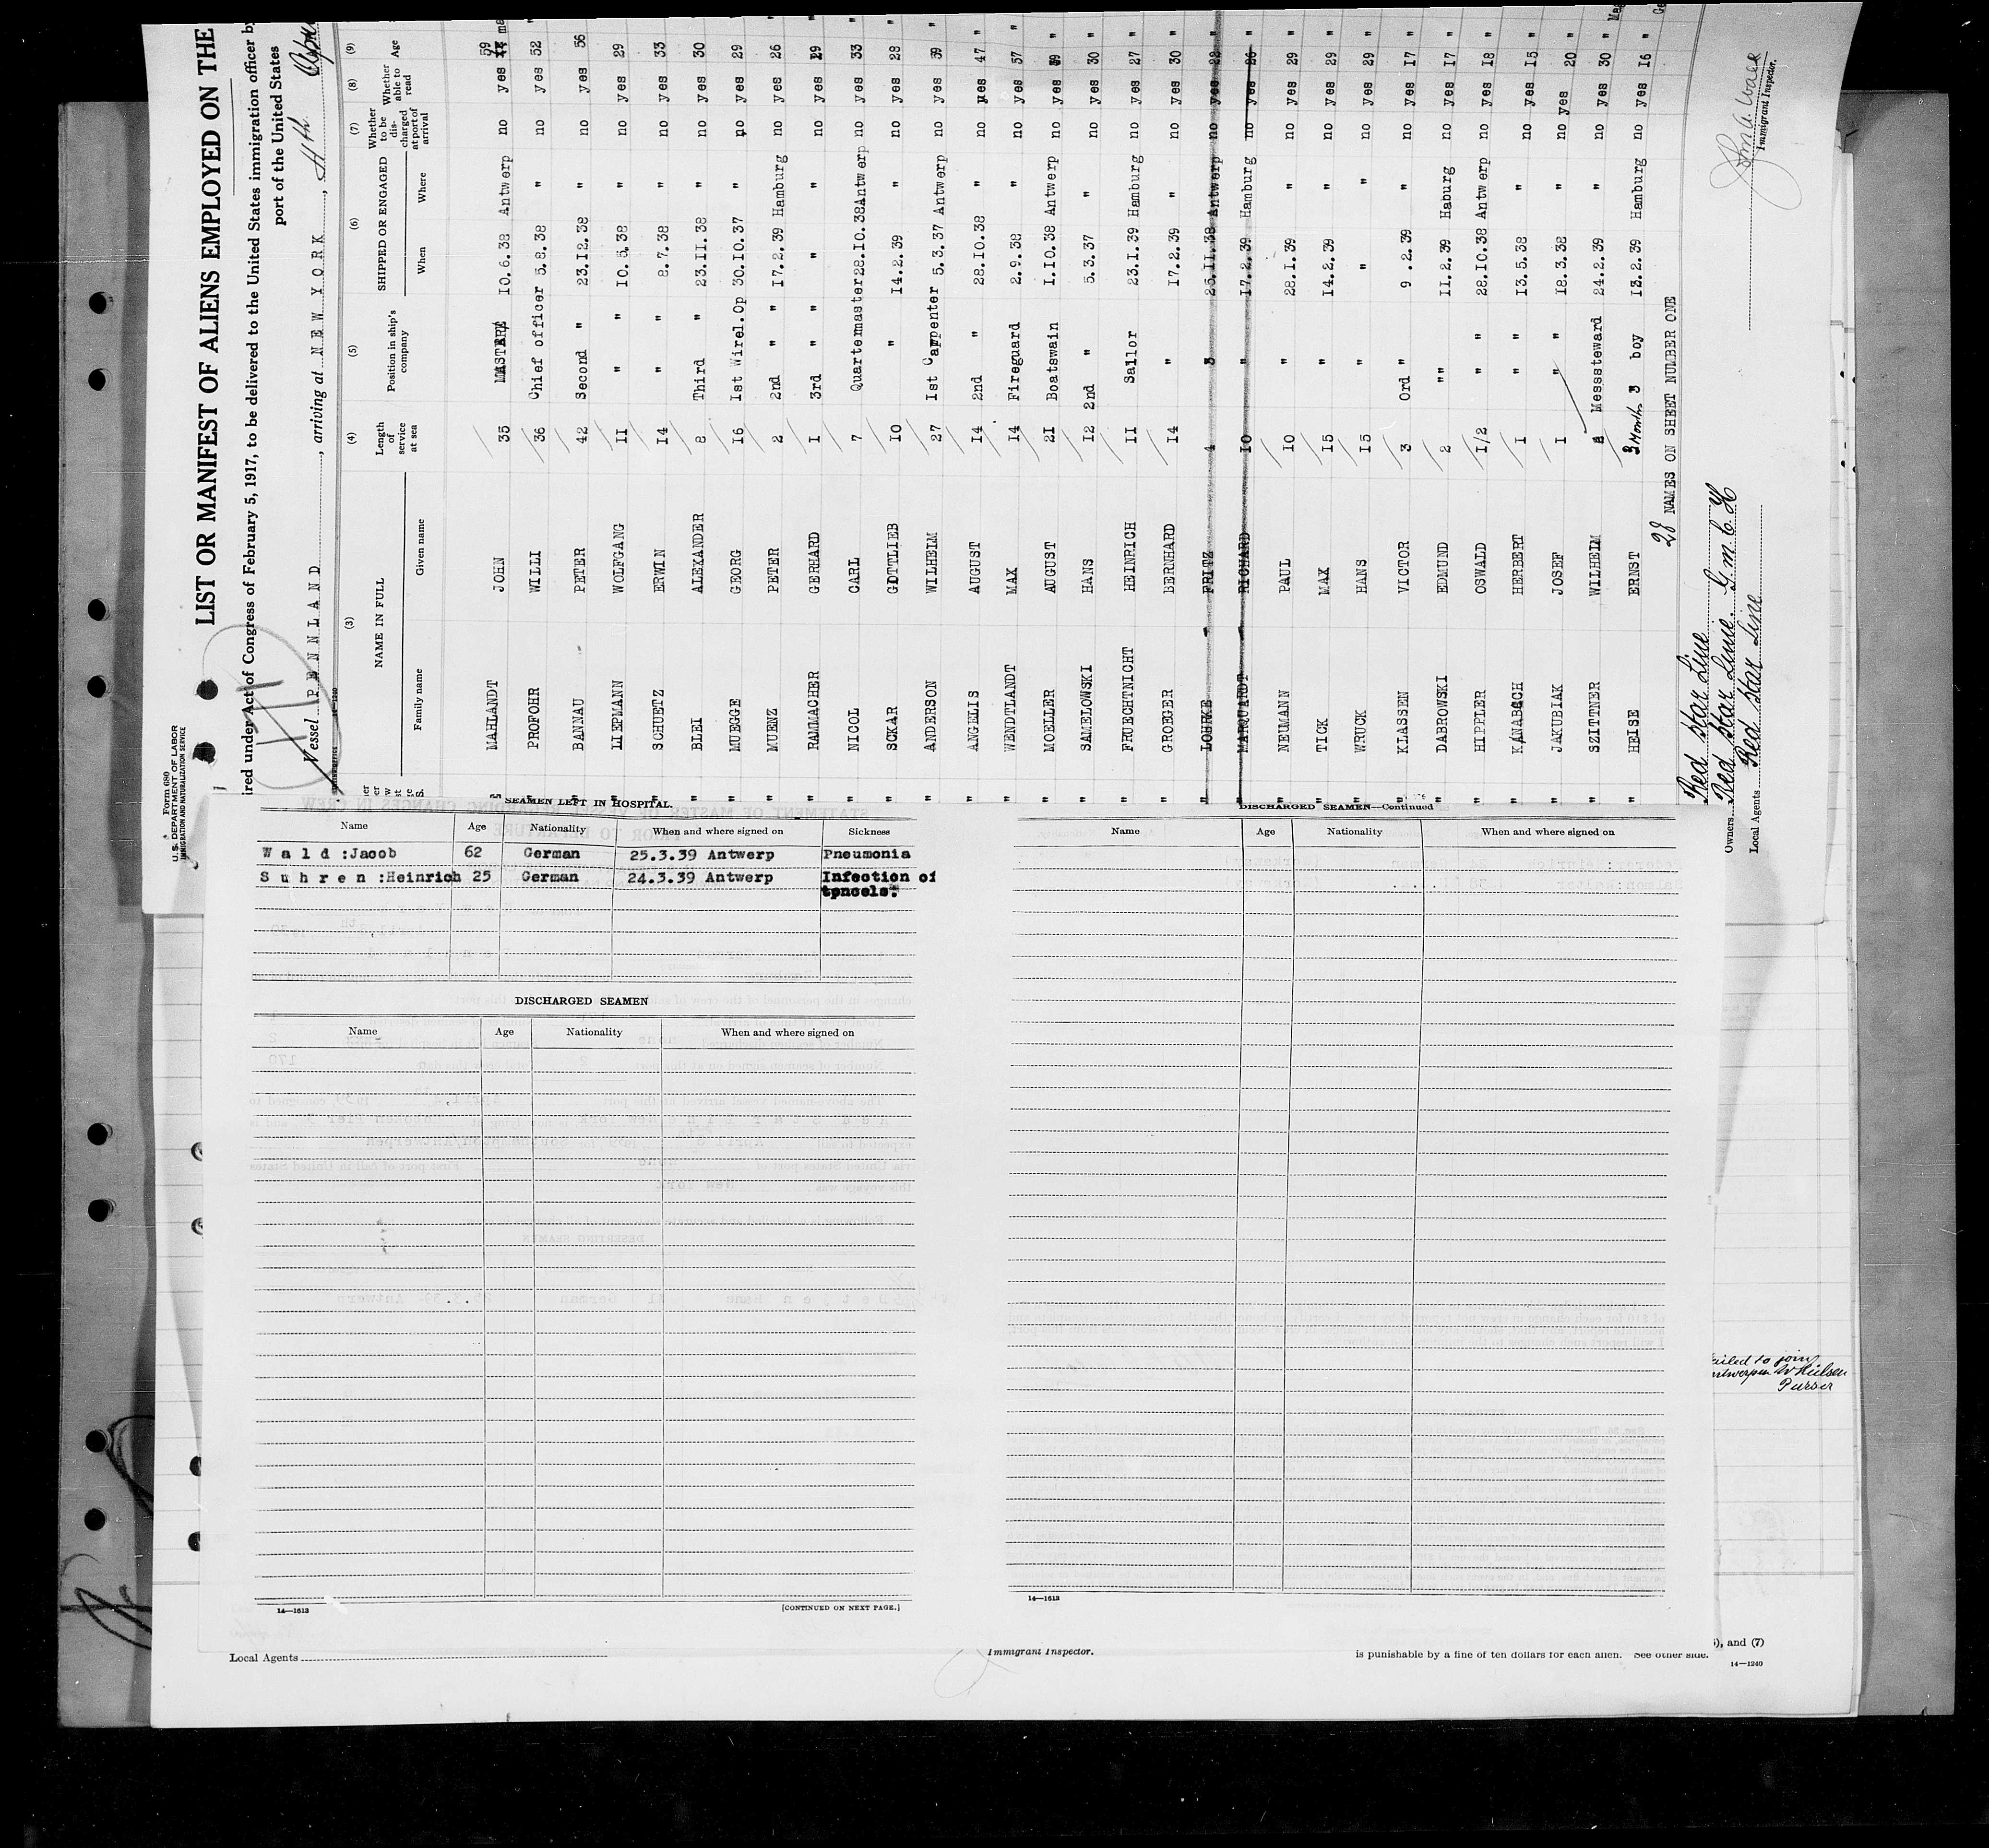 Form 680
U.S. DEPARTMENT OF LABOR
IMMIGRATION AND NATURALIZATION SERVICE
LIST OR MANIFEST OF ALIENS EMPLOYED ON THE
ired under Act of Congress of February 5, 1917, to be delivered to the United States immigration officer by
port of the United States
Vessel PENNLAND, arriving at NEW YORK, 4th Apr
(3) (4) (5) (6) (7) (8) (9)
NAME IN FULL Length of service at sea Position in ship's company SHIPPED OR ENGAGED Whether to be discharged at port of arrival Whether able to read Age
Family name Given name When Where
MAHLANDT JOHN 35 MASTER 10.6.38 Antwerp no yes 59
" PROFOHR WILLI 36 Chief officer 5.8.38 " no yes 52 "
" BANNAU PETER 42 Second " 23.12.38 " no yes 56
" LIEPMANN WOLFGANG 11 " 10.5.38 " no yes 29 "
" SCHUETZ ERWIN 14 " 8.7.38 " no yes 33 "
" BLEI ALEXANDER 8 Third " 23.11.38 " no yes 30 "
" MUEGGE GEORG 16 1st Wirel.Op 30.10.37 " no yes 29 "
" MUENZ PETER 2 2nd " " 17.2.39 Hamburg no yes 26 "
" RAMMACHER GERHARD 1 3rd " " " " no yes 29 "
" NICOL CARL 7 Quartermaster 28.10.38 Antwerp no yes 33 "
" SCKAR GOTTLIEB 10 " 14.2.39 " no yes 28 "
" ANDERSON WILHEIM 27 1st Carpenter 5.3.37 Antwerp no yes 39 "
" ANGELIS AUGUST 14 2nd " 28.10.38 " no yes 47 "
" WENDTLANDT MAX 14 Fireguard 2.9.38 " no yes 37 "
" MOELLER AUGUST 21 Boatswain 1.10.38 Antwerp no yes 39 "
" SAMELOWSKI HANS 12 2nd " 5.3.37 " no yes 30 "
" FRUECHTNICHT HEINRICH 11 Sailor 23.1.39 Hamburg no yes 27 "
" GROEGER BERNHARD 14 " 17.2.39 " no yes 30 "
" LOHRKE FRITZ 4 " 25.11.38 Antwerp no yes 22 "
" MARQUARDT RICHARD 10 " 17.2.39 Hamburg no yes 26 "
" NEUMANN PAUL 10 " 28.1.39 " no yes 29 "
" TICK MAX 15 " 14.2.39 " no yes 29 "
" WRUCK HANS 15 " " " no yes 29 "
" KLASSEN VICTOR 3 Ord " 9.2.39 " no yes 17 "
" DABROWSKI EDMUND 2 "" 11.2.39 Haburg no yes 17 "
" HIPPLER OSWALD 1/2 " " 28.10.38 Antwerp no yes 18 "
" KANABGCH HERBERT 1 " " 13.5.38 " no yes 15 "
" JAKUBIAK JOSEF 1 " " 18.3.38 " no yes 20 "
" SZITTNER WILHEIM Messsteward 24.2.39 " no yes 30 "
" HEISE ERNST 3 Month boy 13.2.39 Hamburg no yes 16 "
28 NAMES ON SHEET NUMBER ONE
Red Star Line
Owners Red Star Line. G.m.b.H
Local Agents Red Star Line
Immigrant Inspector.
SEAMEN LEFT IN HOSPITAL.
Name Age Nationality When and where signed on Sickness
Wald :Jacob 62 German 25.3.39 Antwerp Pneumonia
Suhren :Heinrich 25 German 24.3.39 Antwerp Infection of
DISCHARGED SEAMEN
Name Age Nationality When and where signed on
14—1613 [CONTINUED ON NEXT PAGE.]
DISCHARGED SEAMEN—Continued
Name Age Nationality When and where signed on
14—1613
ailed to join
ntwerpen W Hülsen
Purser
Local Agents
Immigrant Inspector.
is punishable by a fine of ten dollars for each alien. See other side.
), and (7)
14—1240